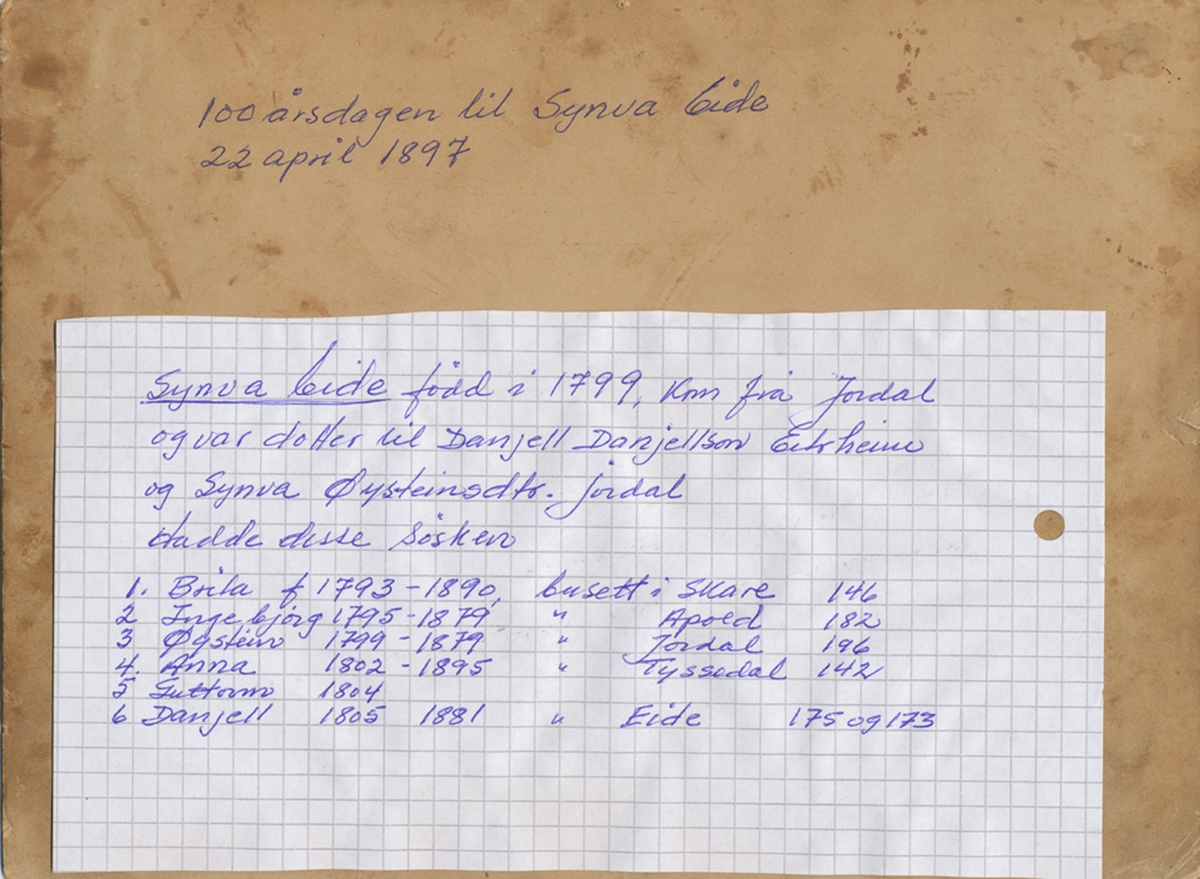 100 årsdagen til Synva Eide
22 april 1897
Synva Eide född i 1799, Kom frå Jordal
og var dotter til Danjell Danjellson Eitrheim
og Synva Øysteinsdtr. Jordal
Hadde disse Søsken
1. Brita f 1793 - 1890, busett i Skare 146
2 Ingebjörg 1795 - 1879 " Apold 182
3 Øystein 1799 - 1879 " Jordal 196
4. Anna 1802 - 1895 " Tyssedal 142
5 Guttorm 1804
6 Danjell 1805 1881 " Eide 175 og 173